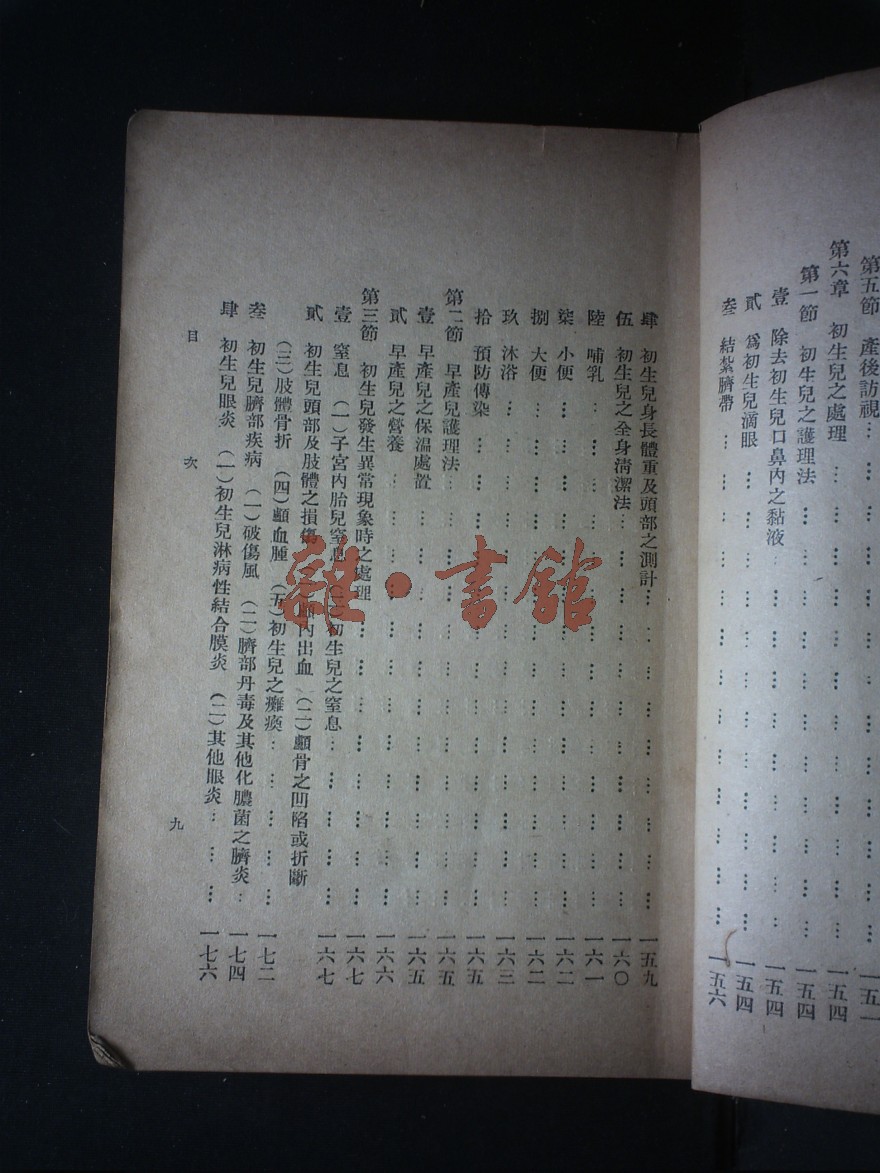 第五節　產後訪視…………一五一
第六章　初生兒之處理…………一五四
第一節　初生兒之護理法…………一五四
壹　除去初生兒口鼻內之黏液…………一五四
貳　爲初生兒滴眼…………一五四
叁　結紮臍帶…………一五六
肆　初生兒身長體重及頭部之測計…………一五九
伍　初生兒之全身清潔法…………一六〇
陸　哺乳…………一六一
柒　小便…………一六二
捌　大便…………一六二
玖　沐浴…………一六三
拾　預防傳染…………一六五
第二節　早產兒護理法…………一六五
壹　早產兒之保温處置…………一六五
貳　早產兒之營養…………一六六
第三節　初生兒發生異常現象時之處理…………一六七
壹　窒息　（一）子宮內胎兒窒息　（二）初生兒之窒息…………一六七
貳　初生兒頭部及肢體之損傷　內出血　（二）顱骨之凹陷或折斷
（三）肢體骨折　（四）顱血腫　（五）初生兒之癱瘓…………一七二
叁　初生兒臍部疾病　（一）破傷風　（二）臍部丹毒及其他化膿菌之臍炎…一七四
肆　初生兒眼炎　（一）初生兒淋病性結合膜炎　（二）其他眼炎…………一七六
目次
九
雜·書館